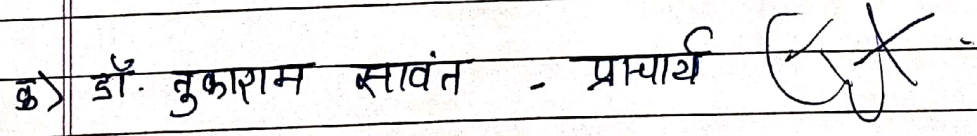 क) डॉ. तुकाराम सावंत - प्राचार्य